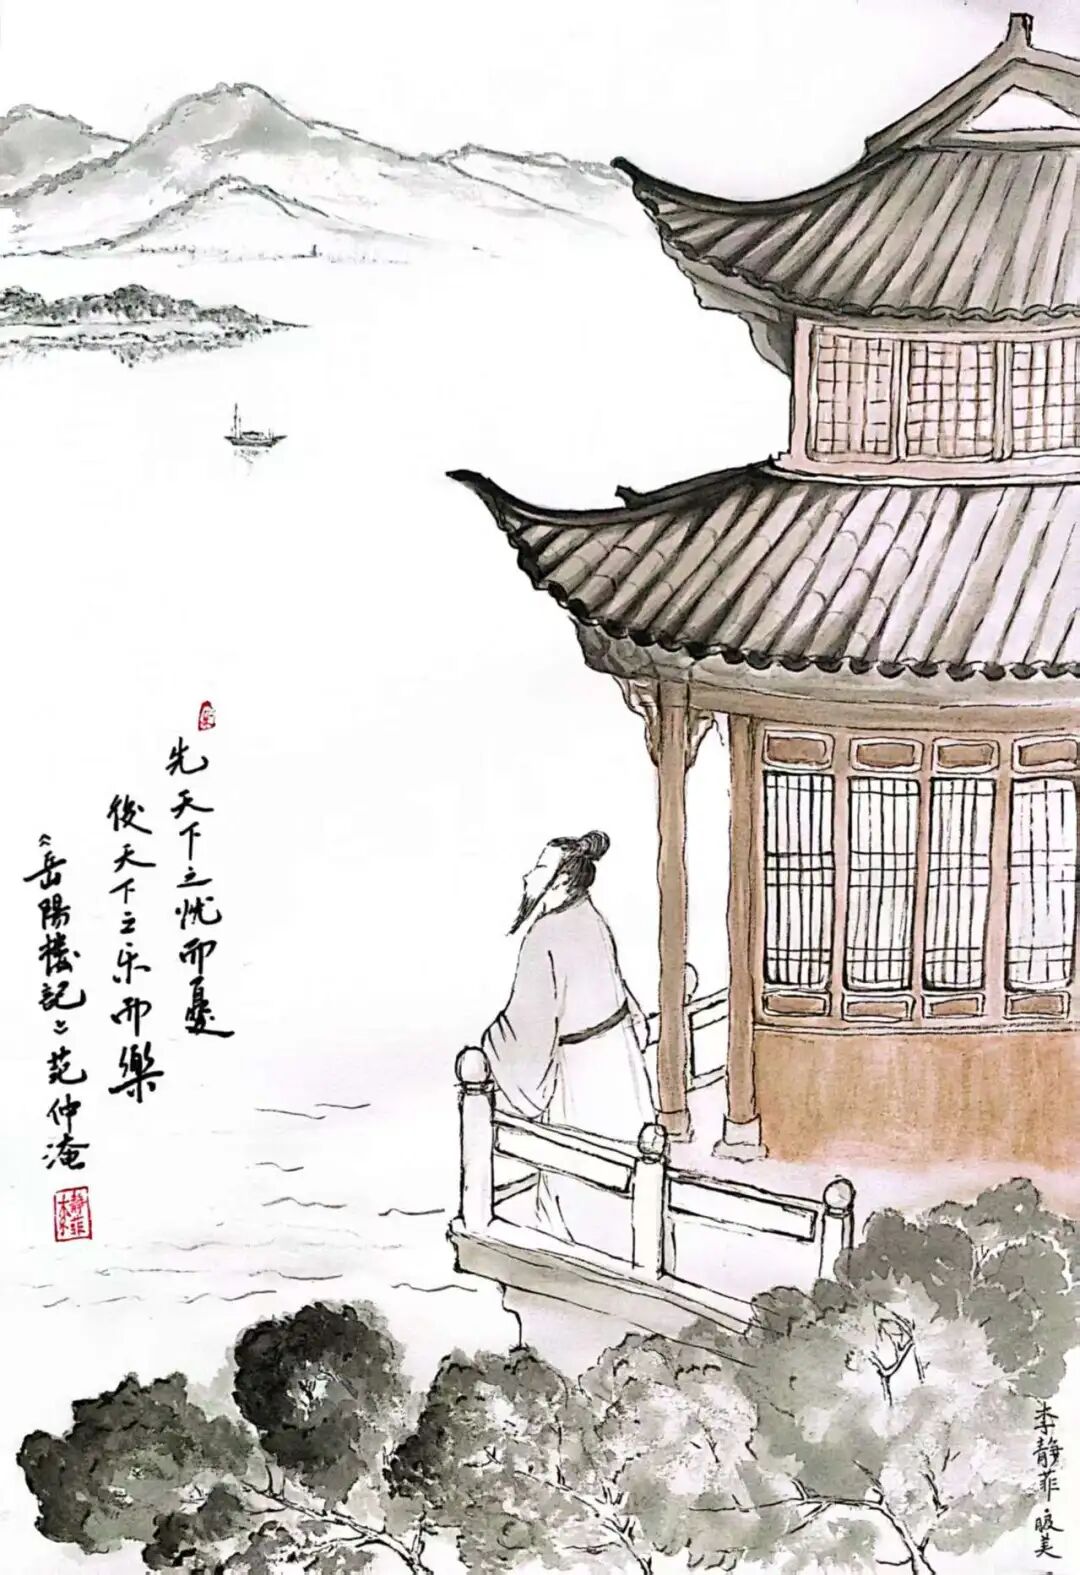 先天下之忧而憂
後天下之乐而樂
《岳陽楼記》范仲淹
李静菲
李静菲